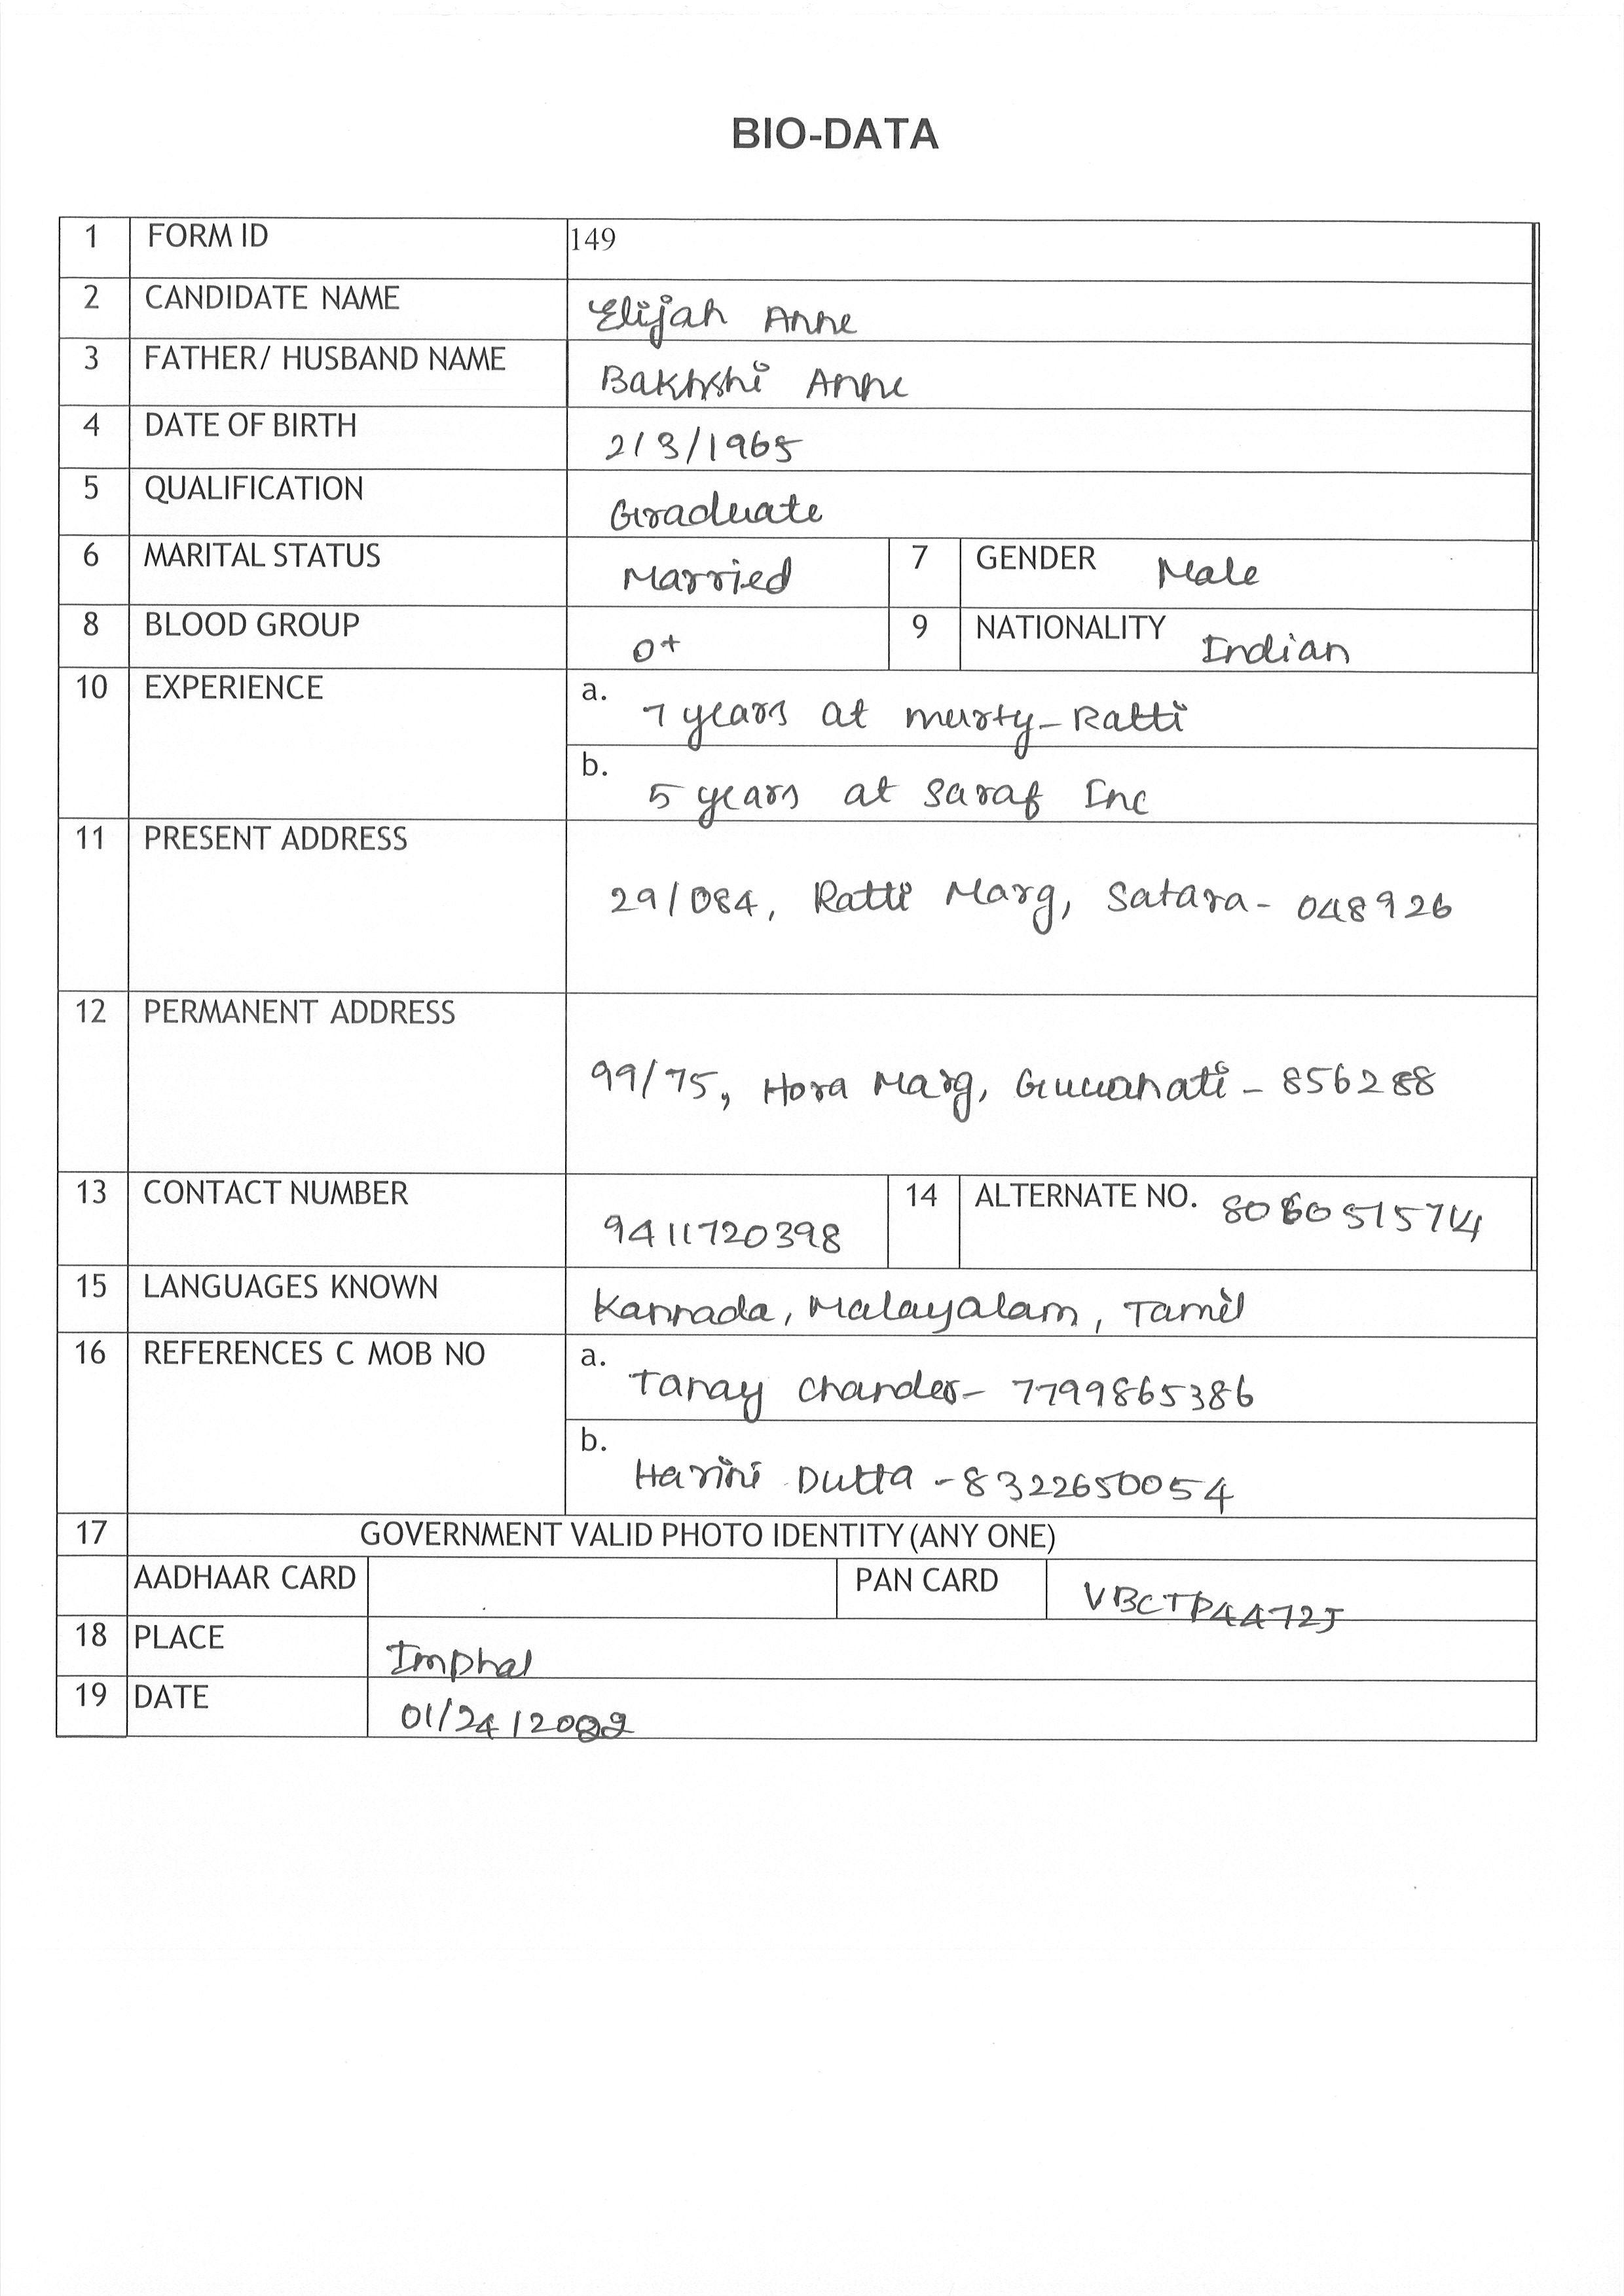 BIO-DATA
1 FORM ID 149
2 CANDIDATE NAME Elijah Anne
3 FATHER/ HUSBAND NAME Bakhshi Anne
4 DATE OF BIRTH 2/3/1965
5 QUALIFICATION Graduate
6 MARITAL STATUS Married 7 GENDER Male
8 BLOOD GROUP O+ 9 NATIONALITY Indian
10 EXPERIENCE a. 7 years at Murty-Ratti
b. 5 years at Saraf Inc
11 PRESENT ADDRESS
29/084, Ratti Marg, Satara- 048926
12 PERMANENT ADDRESS
99/75, Hora Marg, Guwahati - 856288
13 CONTACT NUMBER 9411720398 14 ALTERNATE NO. 8060515714
15 LANGUAGES KNOWN Kannada, Malayalam, Tamil
16 REFERENCES C MOB NO a. Tanay Chander- 7799865386
b. Harini Dutta -8322650054
17 GOVERNMENT VALID PHOTO IDENTITY (ANY ONE)
AADHAAR CARD PAN CARD VBCTP4472J
18 PLACE Imphal
19 DATE 01/24/2022